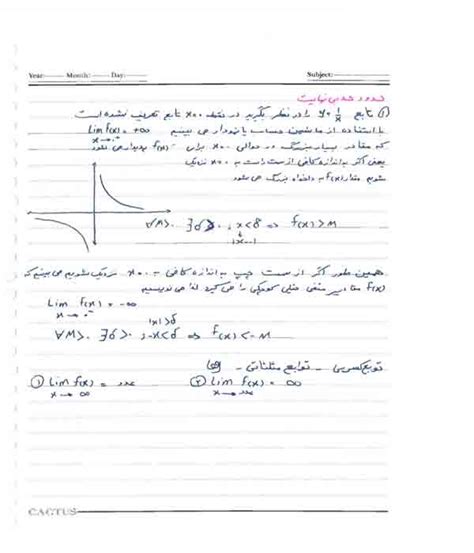 Year: Month: Day: Subject:
حدود حدبی نهایت
① تابع y=1/x را در نظر بگیرید در نقطه x=0 تابع تعریف نشده است
با استفاده از ماشین حساب یا نمودار می بینیم Lim f(x) = +∞
x→0⁺
که مقادیر بسیار بزرگ در حوالی x=0 برای f(x) پدیدار می شود
یعنی اگر به اندازه کافی از سمت راست به x=0 نزدیک
شویم مقدار f(x) به دلخواه بزرگ می شود
∀M>0 ∃δ>0 ; x<δ ⇒ f(x)>M
همین طور اگر از سمت چپ به اندازه کافی به x=0 نزدیک شویم می بینیم که
f(x) مقادیر منفی خیلی کوچکی را می گیرد لذا می نویسیم
Lim f(x) = -∞
x→0⁻
|x|>δ
∀M>0 ∃δ>0 ; -x<δ ⇒ f(x)<-M
توابع کسری - توابع مثلثاتی -
① Lim f(x) = عدد ② Lim f(x) = ∞
x→∞ x→عدد
CACTUS